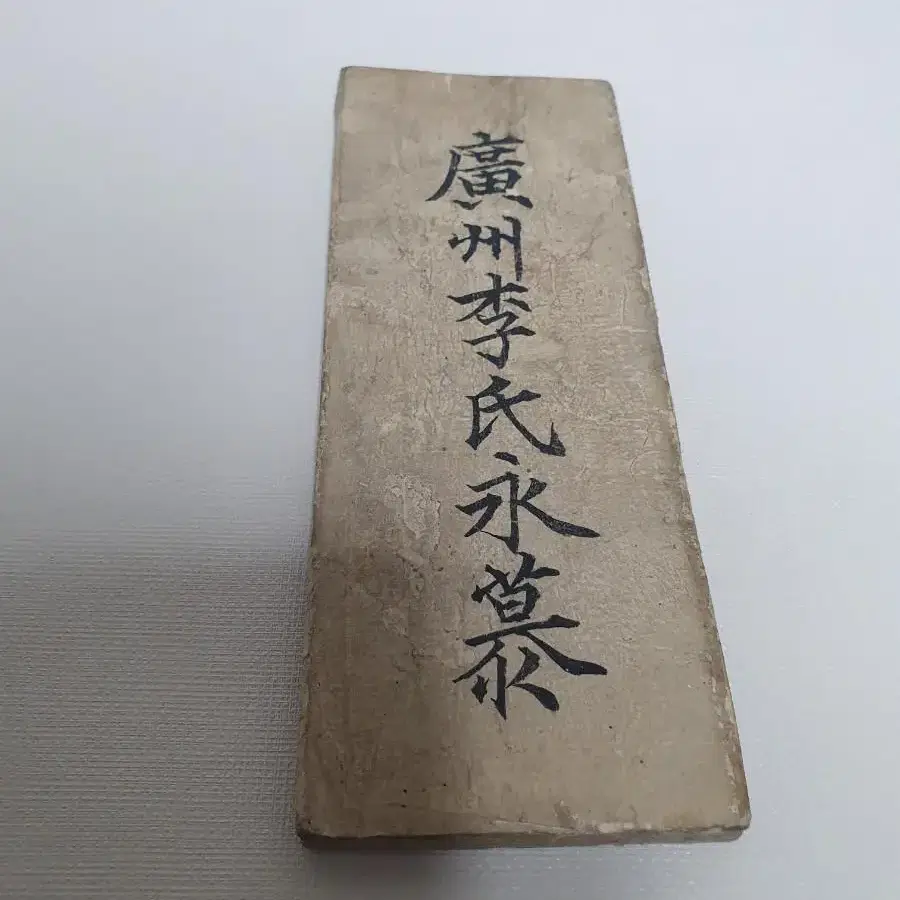 廣州李氏永慕